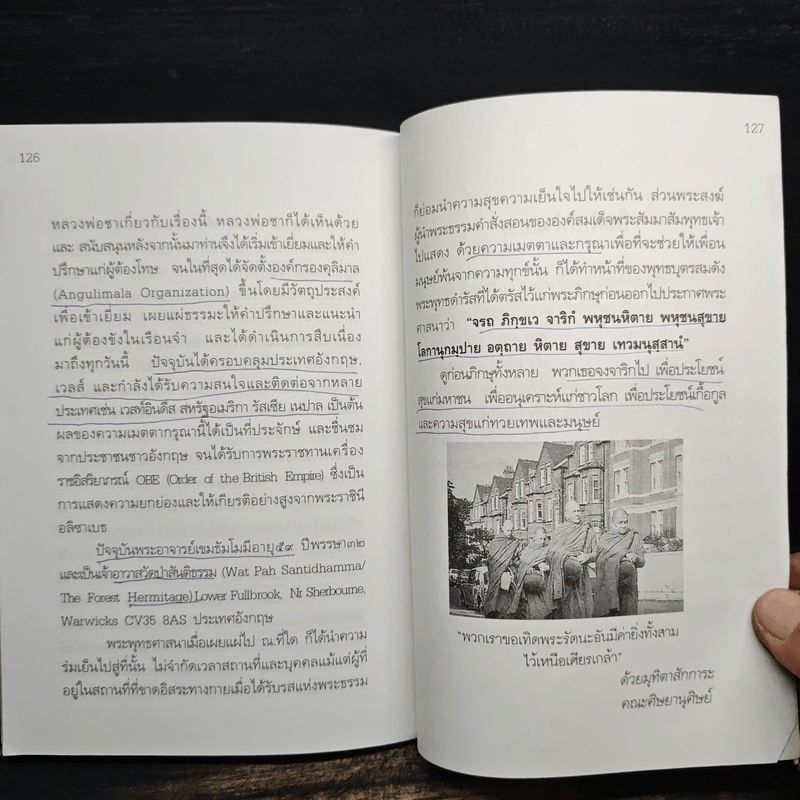 126
หลวงพ่อชาเกี่ยวกับเรื่องนี้ หลวงพ่อชาก็ได้เห็นด้วย
และ สนับสนุนหลังจากนั้นมาท่านจึงได้เริ่มเข้าเยี่ยมและให้คำ
ปรึกษาแก่ผู้ต้องโทษ จนในที่สุดได้จัดตั้งองค์กรองคุลิมาล
(Angulimala Organization) ขึ้นโดยมีวัตถุประสงค์
เพื่อเข้าเยี่ยม เผยแผ่ธรรมะให้คำปรึกษาและแนะนำ
แก่ผู้ต้องขังในเรือนจำ และได้ดำเนินการสืบเนื่อง
มาถึงทุกวันนี้ ปัจจุบันได้ครอบคลุมประเทศอังกฤษ,
เวลส์ และกำลังได้รับความสนใจและติดต่อจากหลาย
ประเทศเช่น เวสท์อินดีส สหรัฐอเมริกา รัสเซีย เนปาล เป็นต้น
ผลของความเมตตากรุณานี้ได้เป็นที่ประจักษ์ และชื่นชม
จากประชาชนชาวอังกฤษ จนได้รับการพระราชทานเครื่อง
ราชอิสริยาภรณ์ OBE (Order of the British Empire) ซึ่งเป็น
การแสดงความยกย่องและให้เกียรติอย่างสูงจากพระราชินี
อลิซาเบธ
ปัจจุบันพระอาจารย์เขมธัมโมมีอายุ๕๙ ปีพรรษา๓๒
และเป็นเจ้าอาวาสวัดป่าสันติธรรม (Wat Pah Santidhamma/
The Forest Hermitage)Lower Fullbrook, Nr Sherbourne,
Warwicks CV35 8AS ประเทศอังกฤษ
พระพุทธศาสนาเมื่อเผยแผ่ไป ณ.ที่ใด ก็ได้นำความ
ร่มเย็นไปสู่ที่นั้น ไม่จำกัดเวลาสถานที่และบุคคลแม้แต่ผู้ที่
อยู่ในสถานที่ที่ขาดอิสระทางกายเมื่อได้รับรสแห่งพระธรรม
127
ก็ย่อมนำความสุขความเย็นใจไปให้เช่นกัน ส่วนพระสงฆ์
ผู้นำพระธรรมคำสั่งสอนขององค์สมเด็จพระสัมมาสัมพุทธเจ้า
ไปแสดง ด้วยความเมตตาและกรุณาเพื่อที่จะช่วยให้เพื่อน
มนุษย์พ้นจากความทุกข์นั้น ก็ได้ทำหน้าที่ของพุทธบุตรสมดัง
พระพุทธดำรัสที่ได้ตรัสไว้แก่พระภิกษุก่อนออกไปประกาศพระ
ศาสนาว่า "จรถ ภิกฺขเว จาริกํ พหุชนหิตาย พหุชนสุขาย
โลกานุกมฺปาย อตฺถาย หิตาย สุขาย เทวมนุสฺสานํ"
ดูก่อนภิกษุทั้งหลาย พวกเธอจงจาริกไป เพื่อประโยชน์
สุขแก่มหาชน เพื่ออนุเคราะห์แก่ชาวโลก เพื่อประโยชน์เกื้อกูล
และความสุขแก่ทวยเทพและมนุษย์
"พวกเราขอเทิดพระรัตนะอันมีค่ายิ่งทั้งสาม
ไว้เหนือเศียรเกล้า"
ด้วยมุทิตาสักการะ
คณะศิษยานุศิษย์